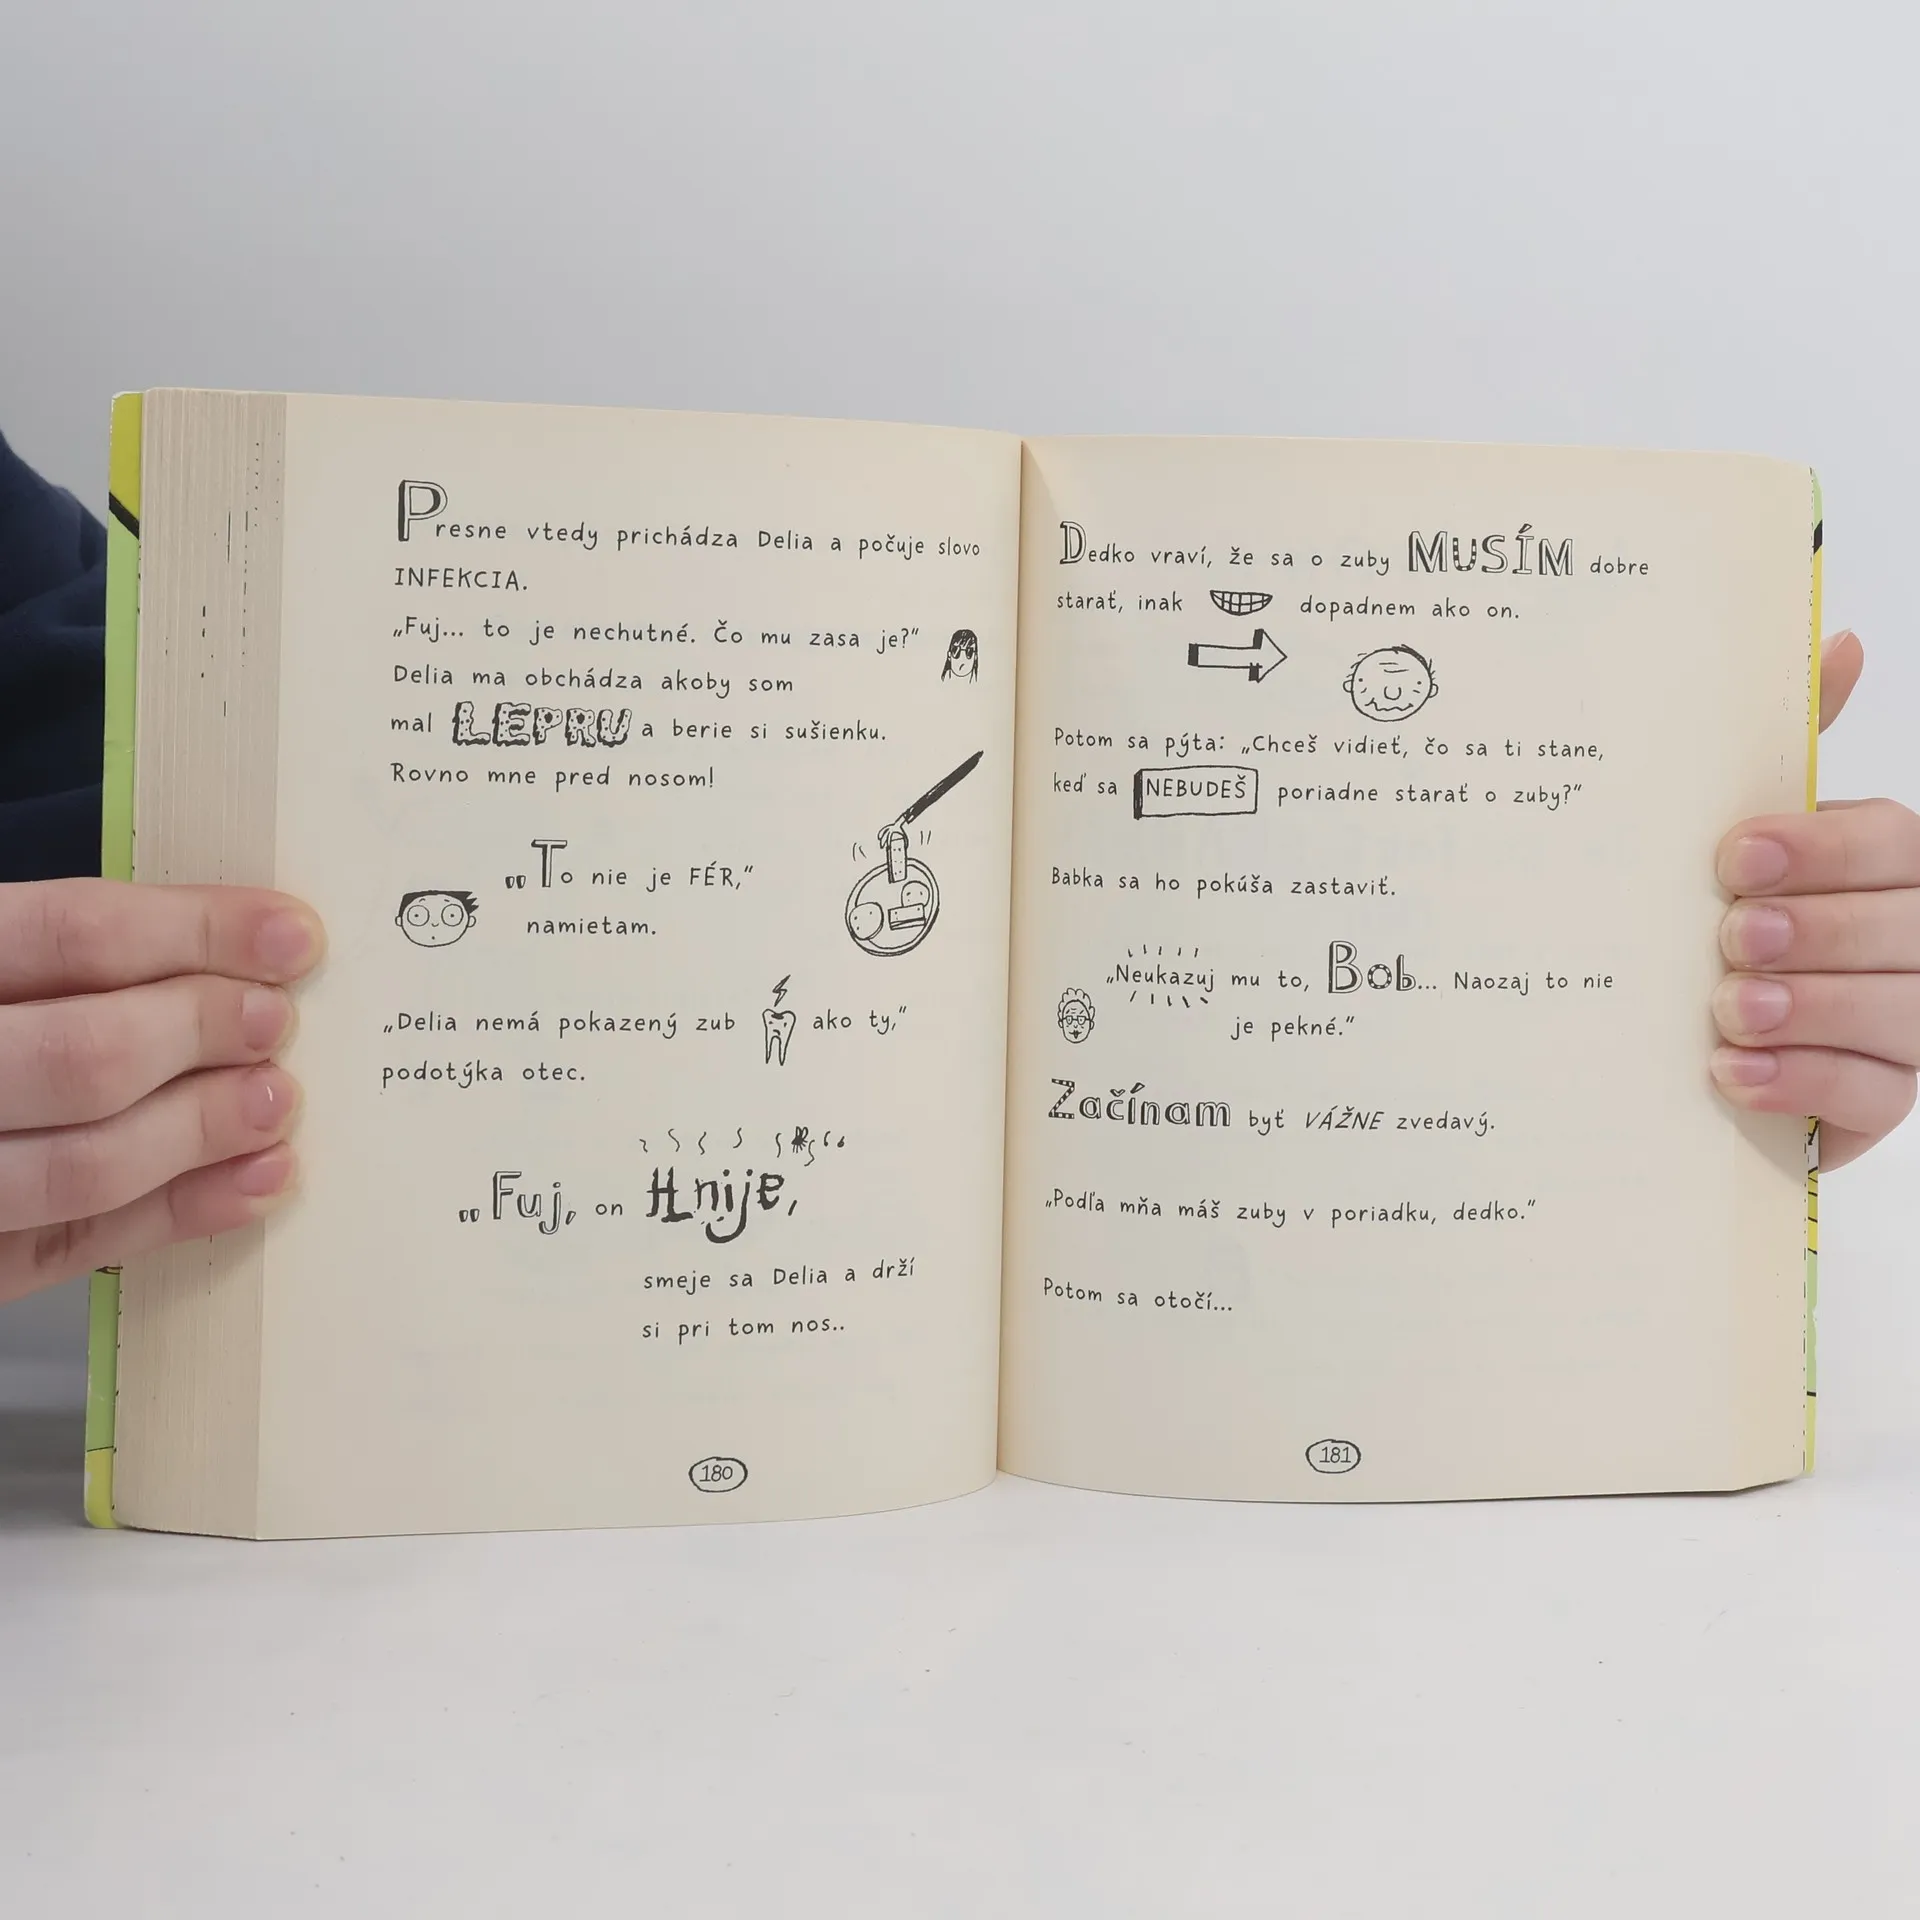 Presne vtedy prichádza Delia a počuje slovo
INFEKCIA.
„Fuj... to je nechutné. Čo mu zasa je?“
Delia ma obchádza akoby som
mal LEPRU a berie si sušienku.
Rovno mne pred nosom!
„To nie je FÉR,“
namietam.
„Delia nemá pokazený zub ako ty,“
podotýka otec.
„Fuj, on Hnije,
smeje sa Delia a drží
si pri tom nos..
180
Dedko vraví, že sa o zuby MUSÍM dobre
starať, inak dopadnem ako on.
Potom sa pýta: „Chceš vidieť, čo sa ti stane,
keď sa NEBUDEŠ poriadne starať o zuby?“
Babka sa ho pokúša zastaviť.
„Neukazuj mu to, Bob... Naozaj to nie
je pekné.“
Začínam byť VÁŽNE zvedavý.
„Podľa mňa máš zuby v poriadku, dedko.“
Potom sa otočí...
181